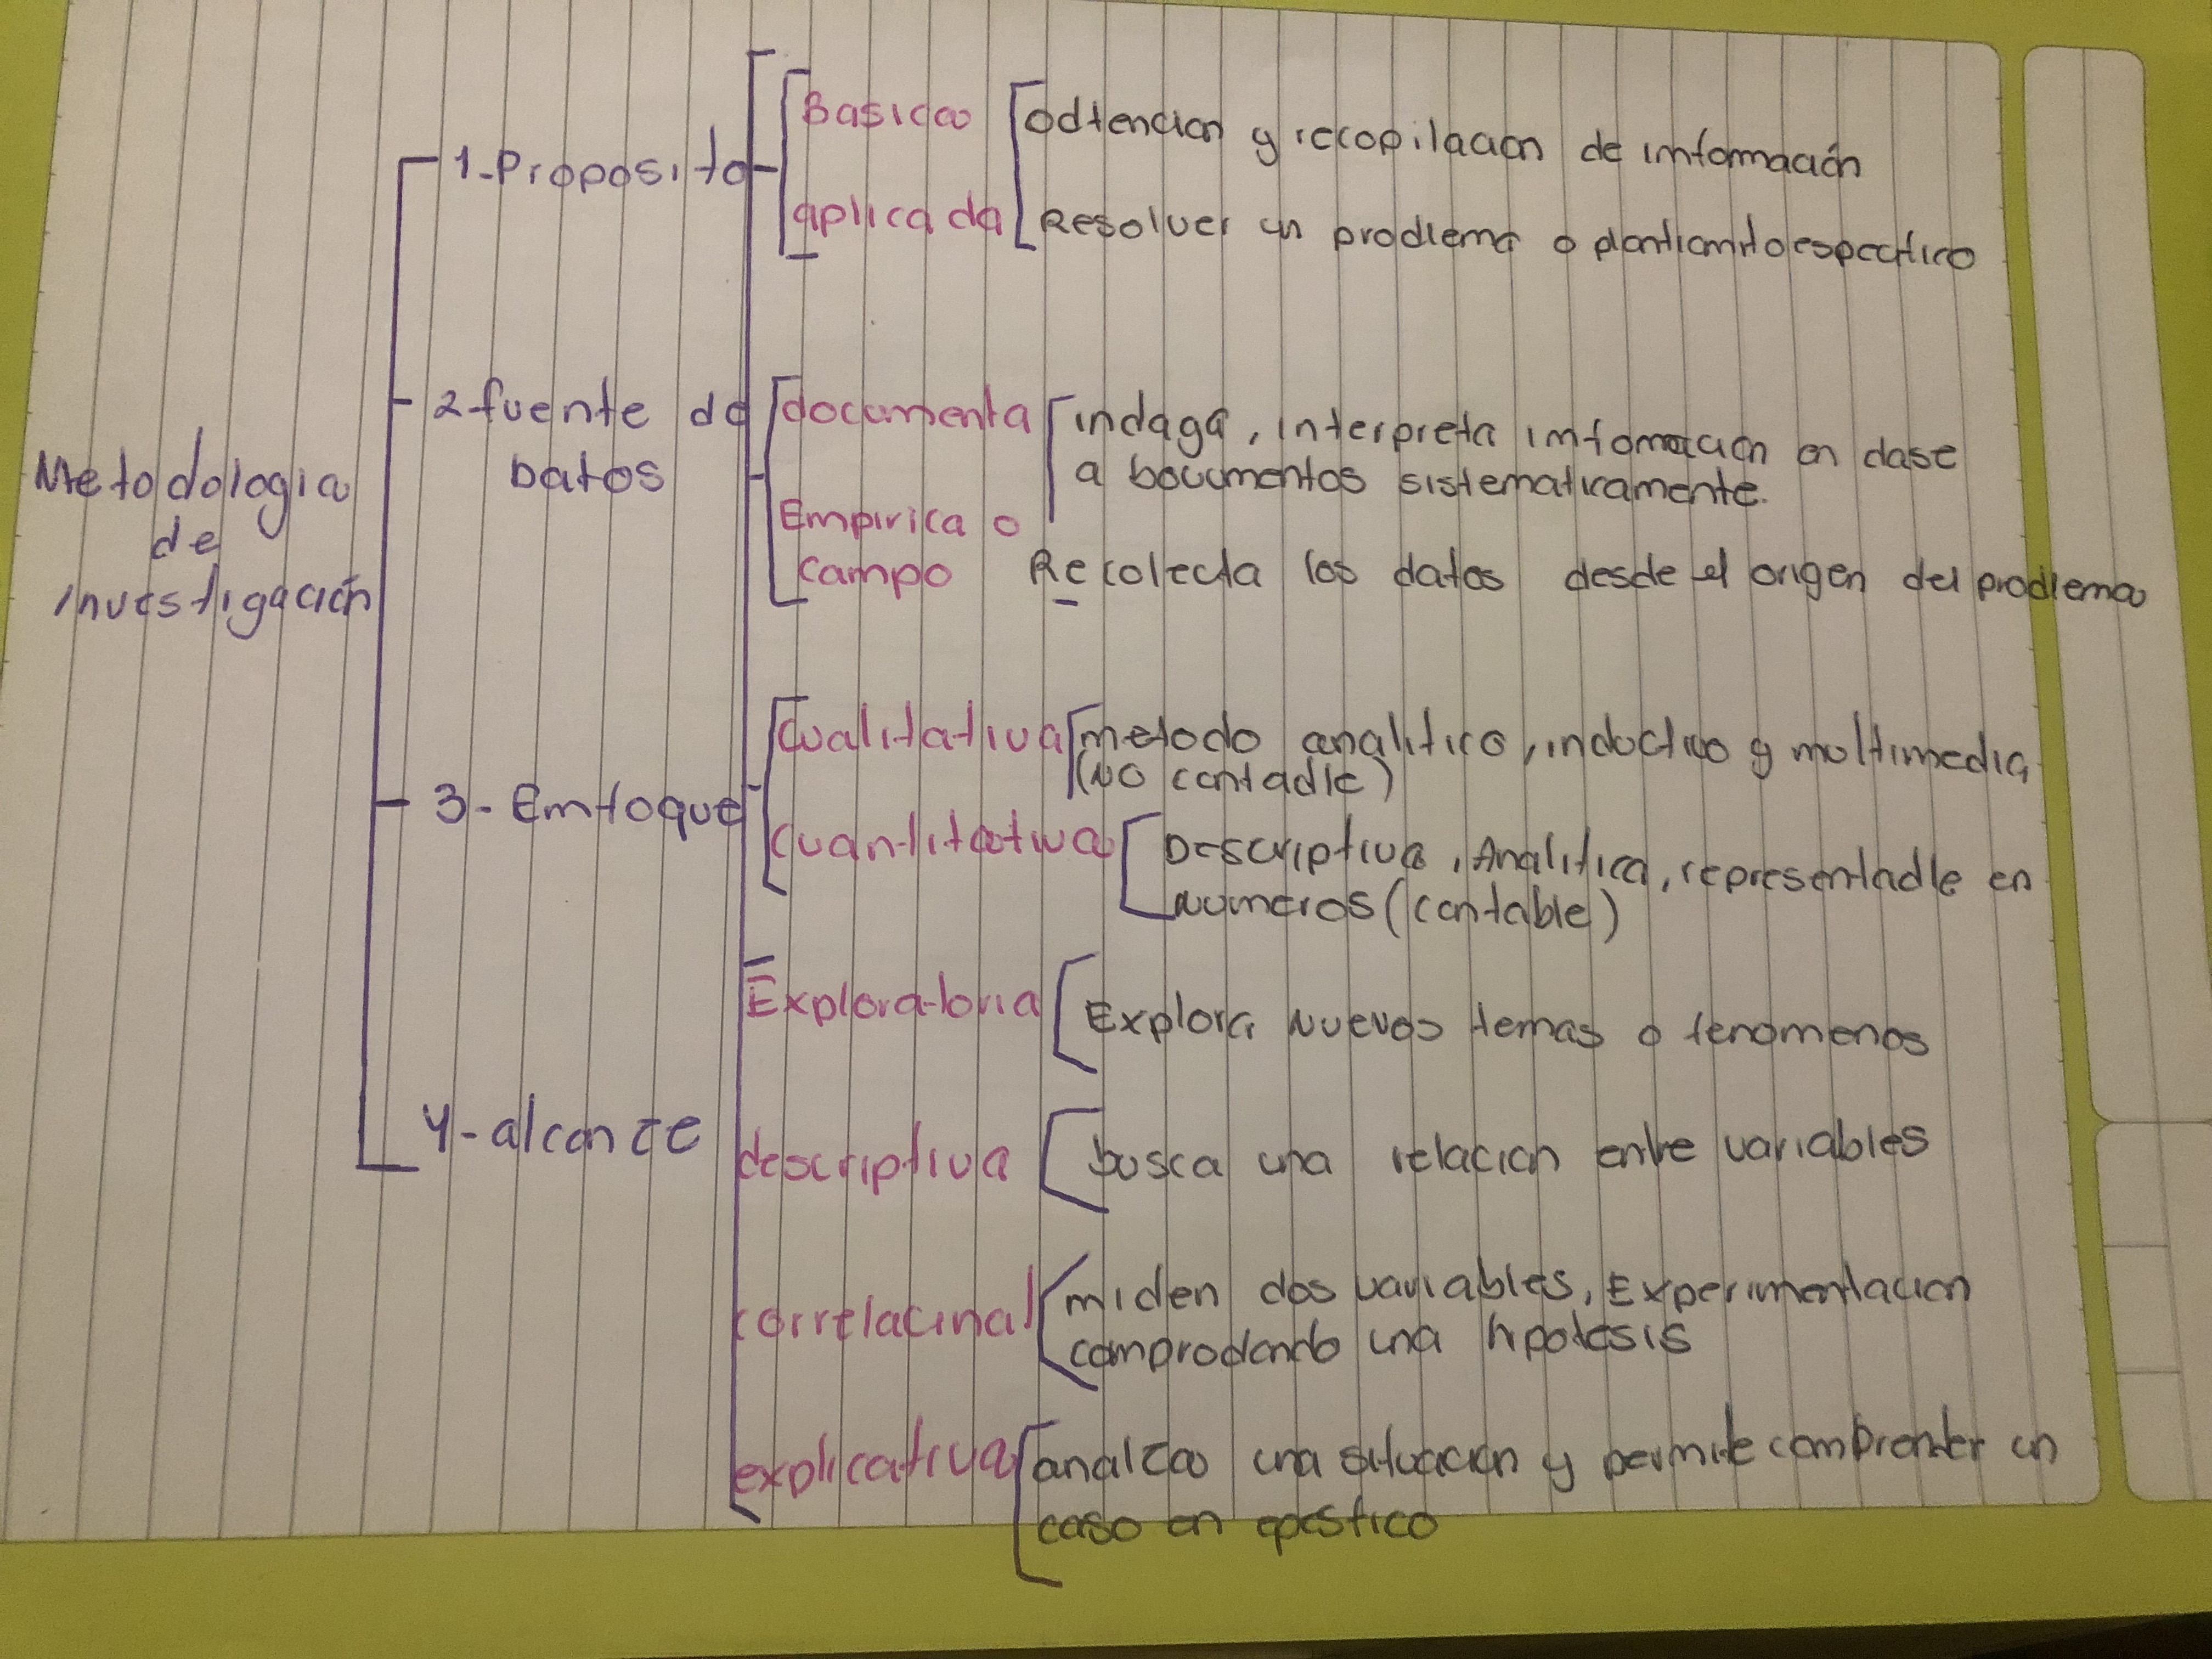 Metodologia
de
investigación
1-Proposito
Basica
odtencion y recopilacion de imformación
aplicada
Resolver un prodlema o plantiamito especifico
2-fuente de
Datos
documenta
indaga, interpreta imfomacion en dase
a bocumentos sistematicamente.
Empirica o
campo
Recolecta los datos desde el origen del prodlema
3- Emfoque
Cualitativa
metodo analitico, inductivo y multimedia
(No contadle)
Cuantitativa
Descriptiva, Analitica, representadle en
Numeros (contable)
4-alcance
Exploratoria
Explora Nuevos temas o fenomenos
descriptiva
busca una relacion entre variables
correlacinal
miden dos variables, Experimentacion
comprodando una hipotesis
explicativa
analza una situacion y permite comprender un
caso en